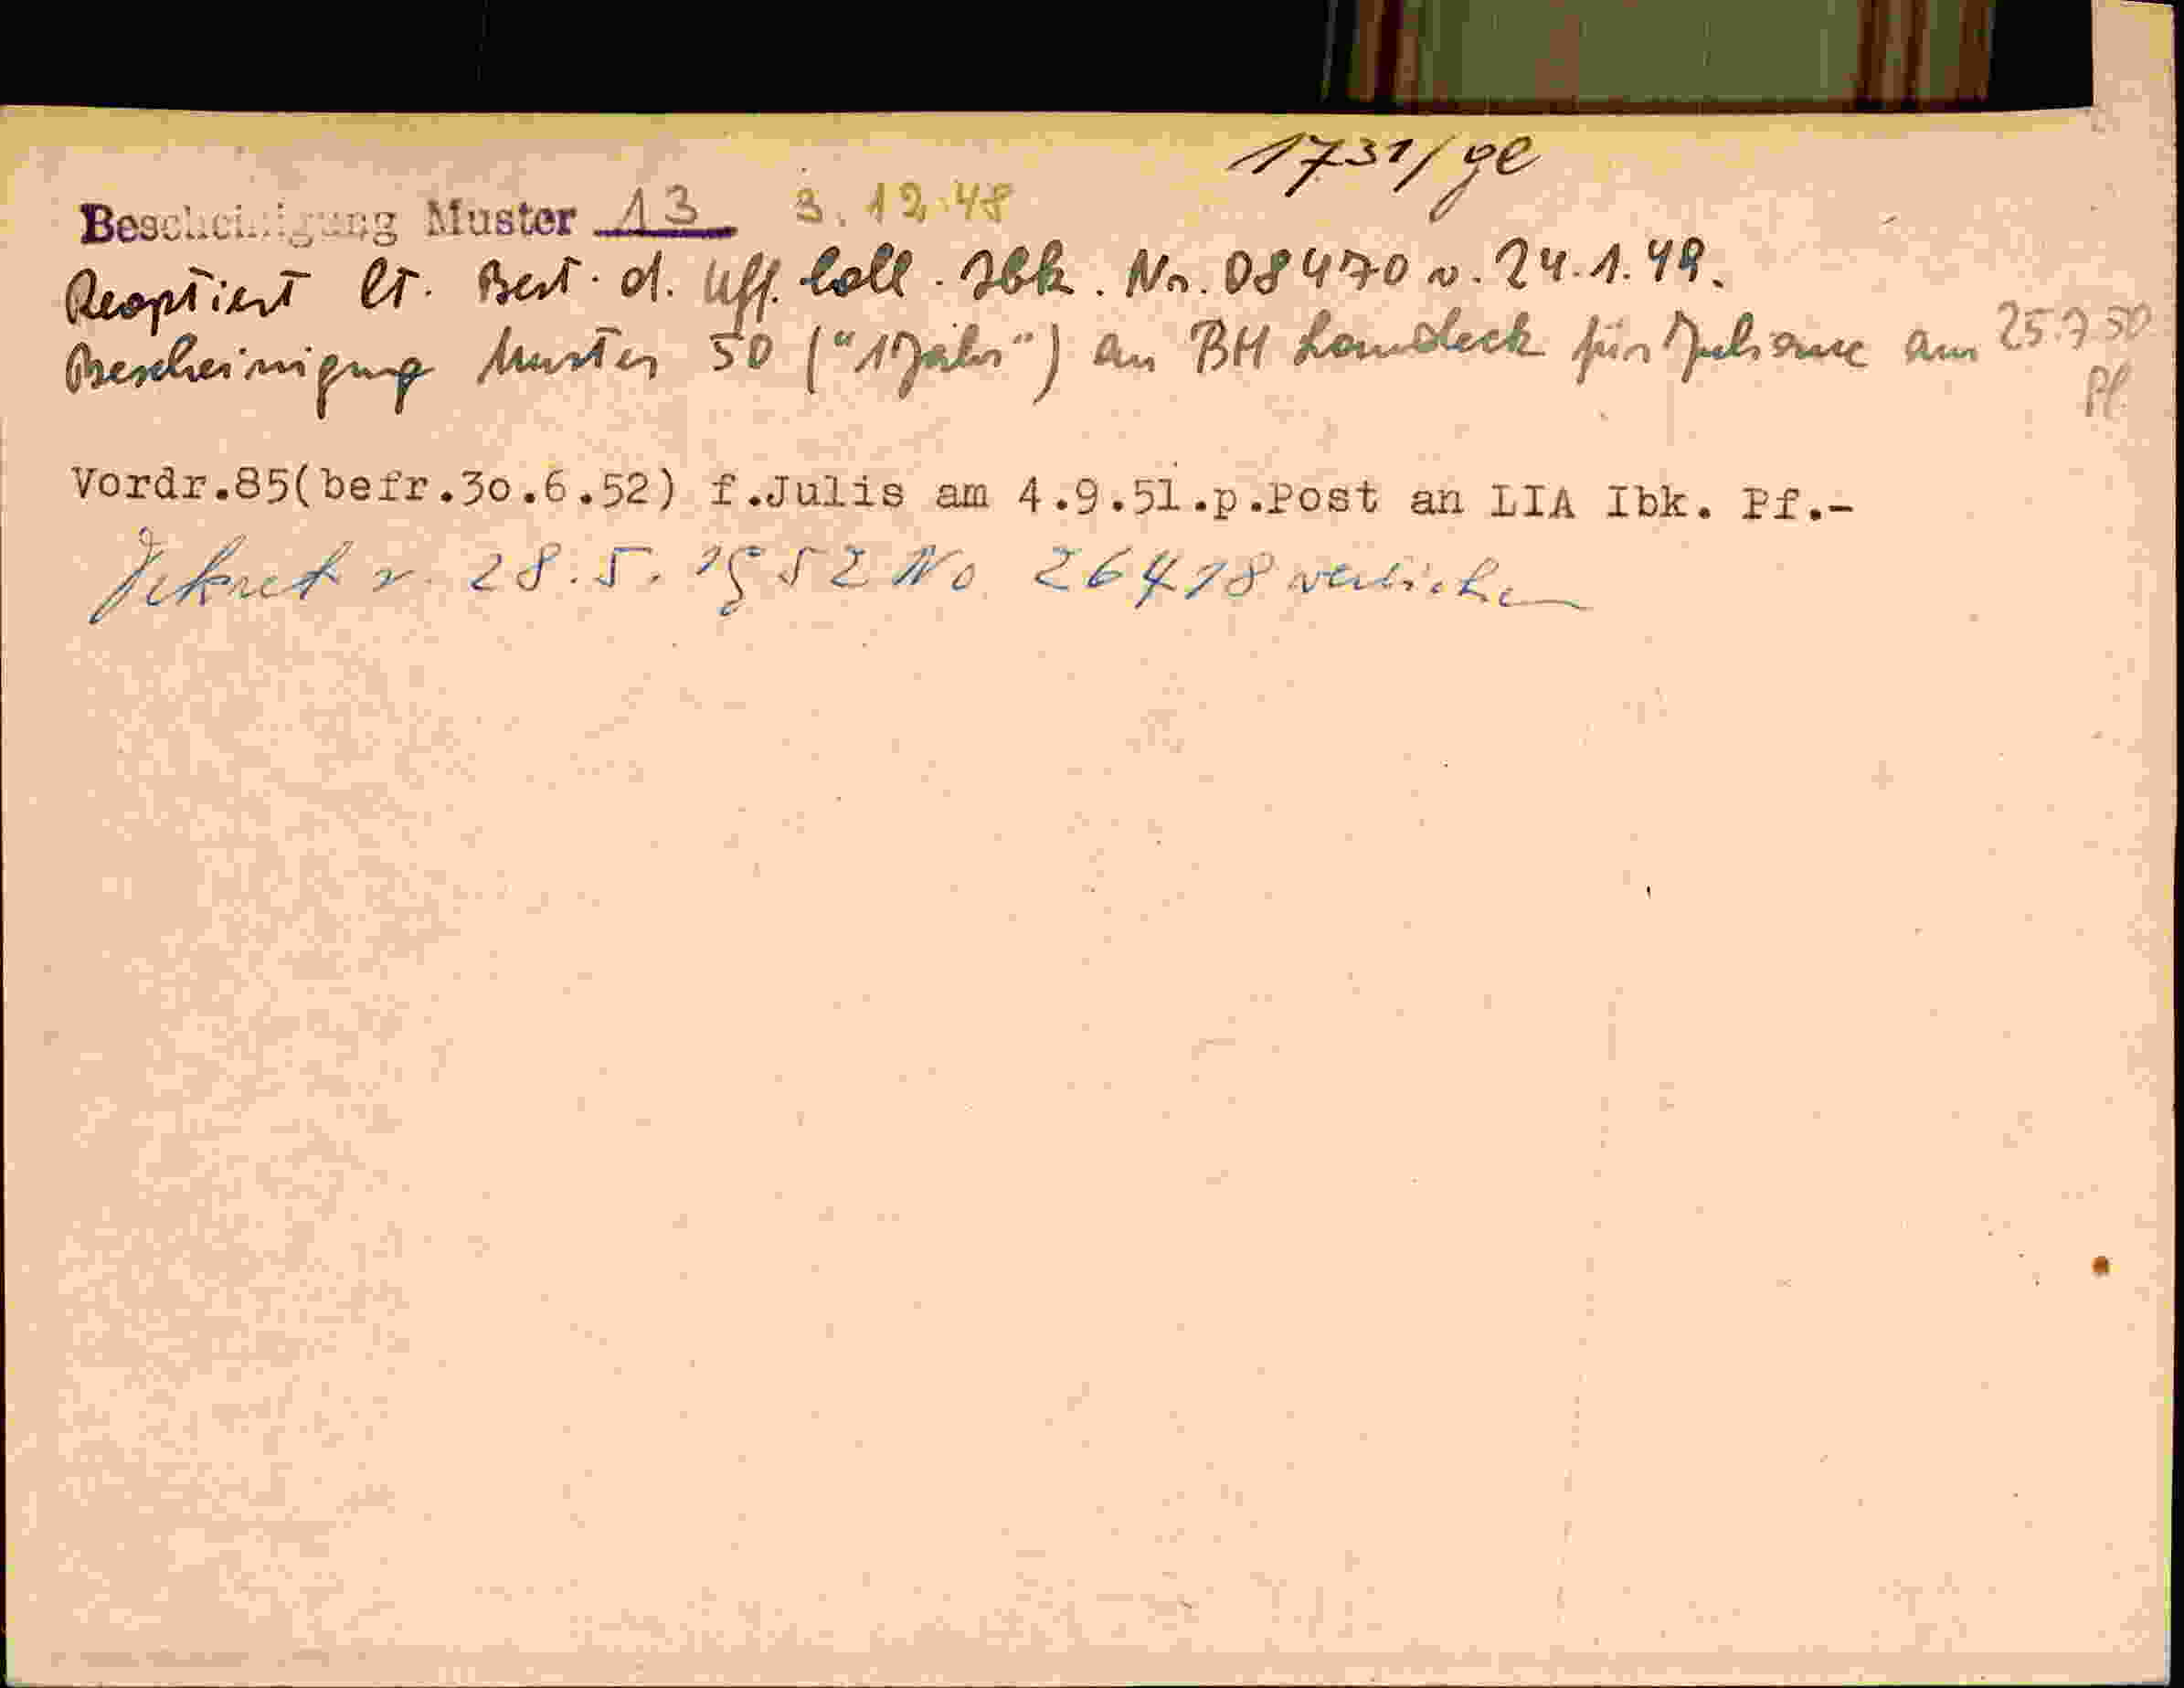 1731/ge
Bescheinigung Muster 13 3.12.48
Reoptiert lt. Best. d. Uff. Coll. Ibk. Nr. 08470 v. 24.1.49.
Bescheinigung Muster 50 ("1 Jahr") an BH Landeck für Juliane am 25.7.50
Pf.
Vordr.85(befr.30.6.52) f.Julis am 4.9.51.p.Post an LIA Ibk. Pf.-
Dekret v. 28.5.1952 No 26418 verliehen